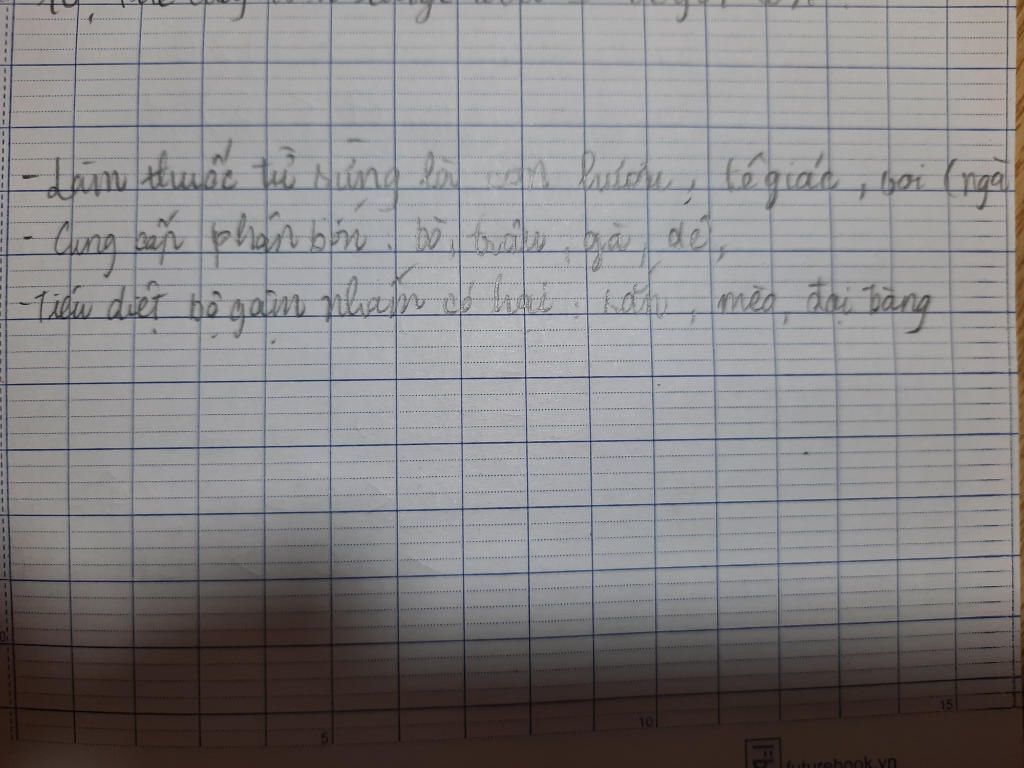 - Làm thuốc từ sừng là con hươu, tê giác, voi (ngà
- Cung cấp phân bón: bò, trâu, gà, dê,
- Tiêu diệt bộ gặm nhấm có hại: rắn, mèo, đại bàng
5
10
15
futurebook.vn